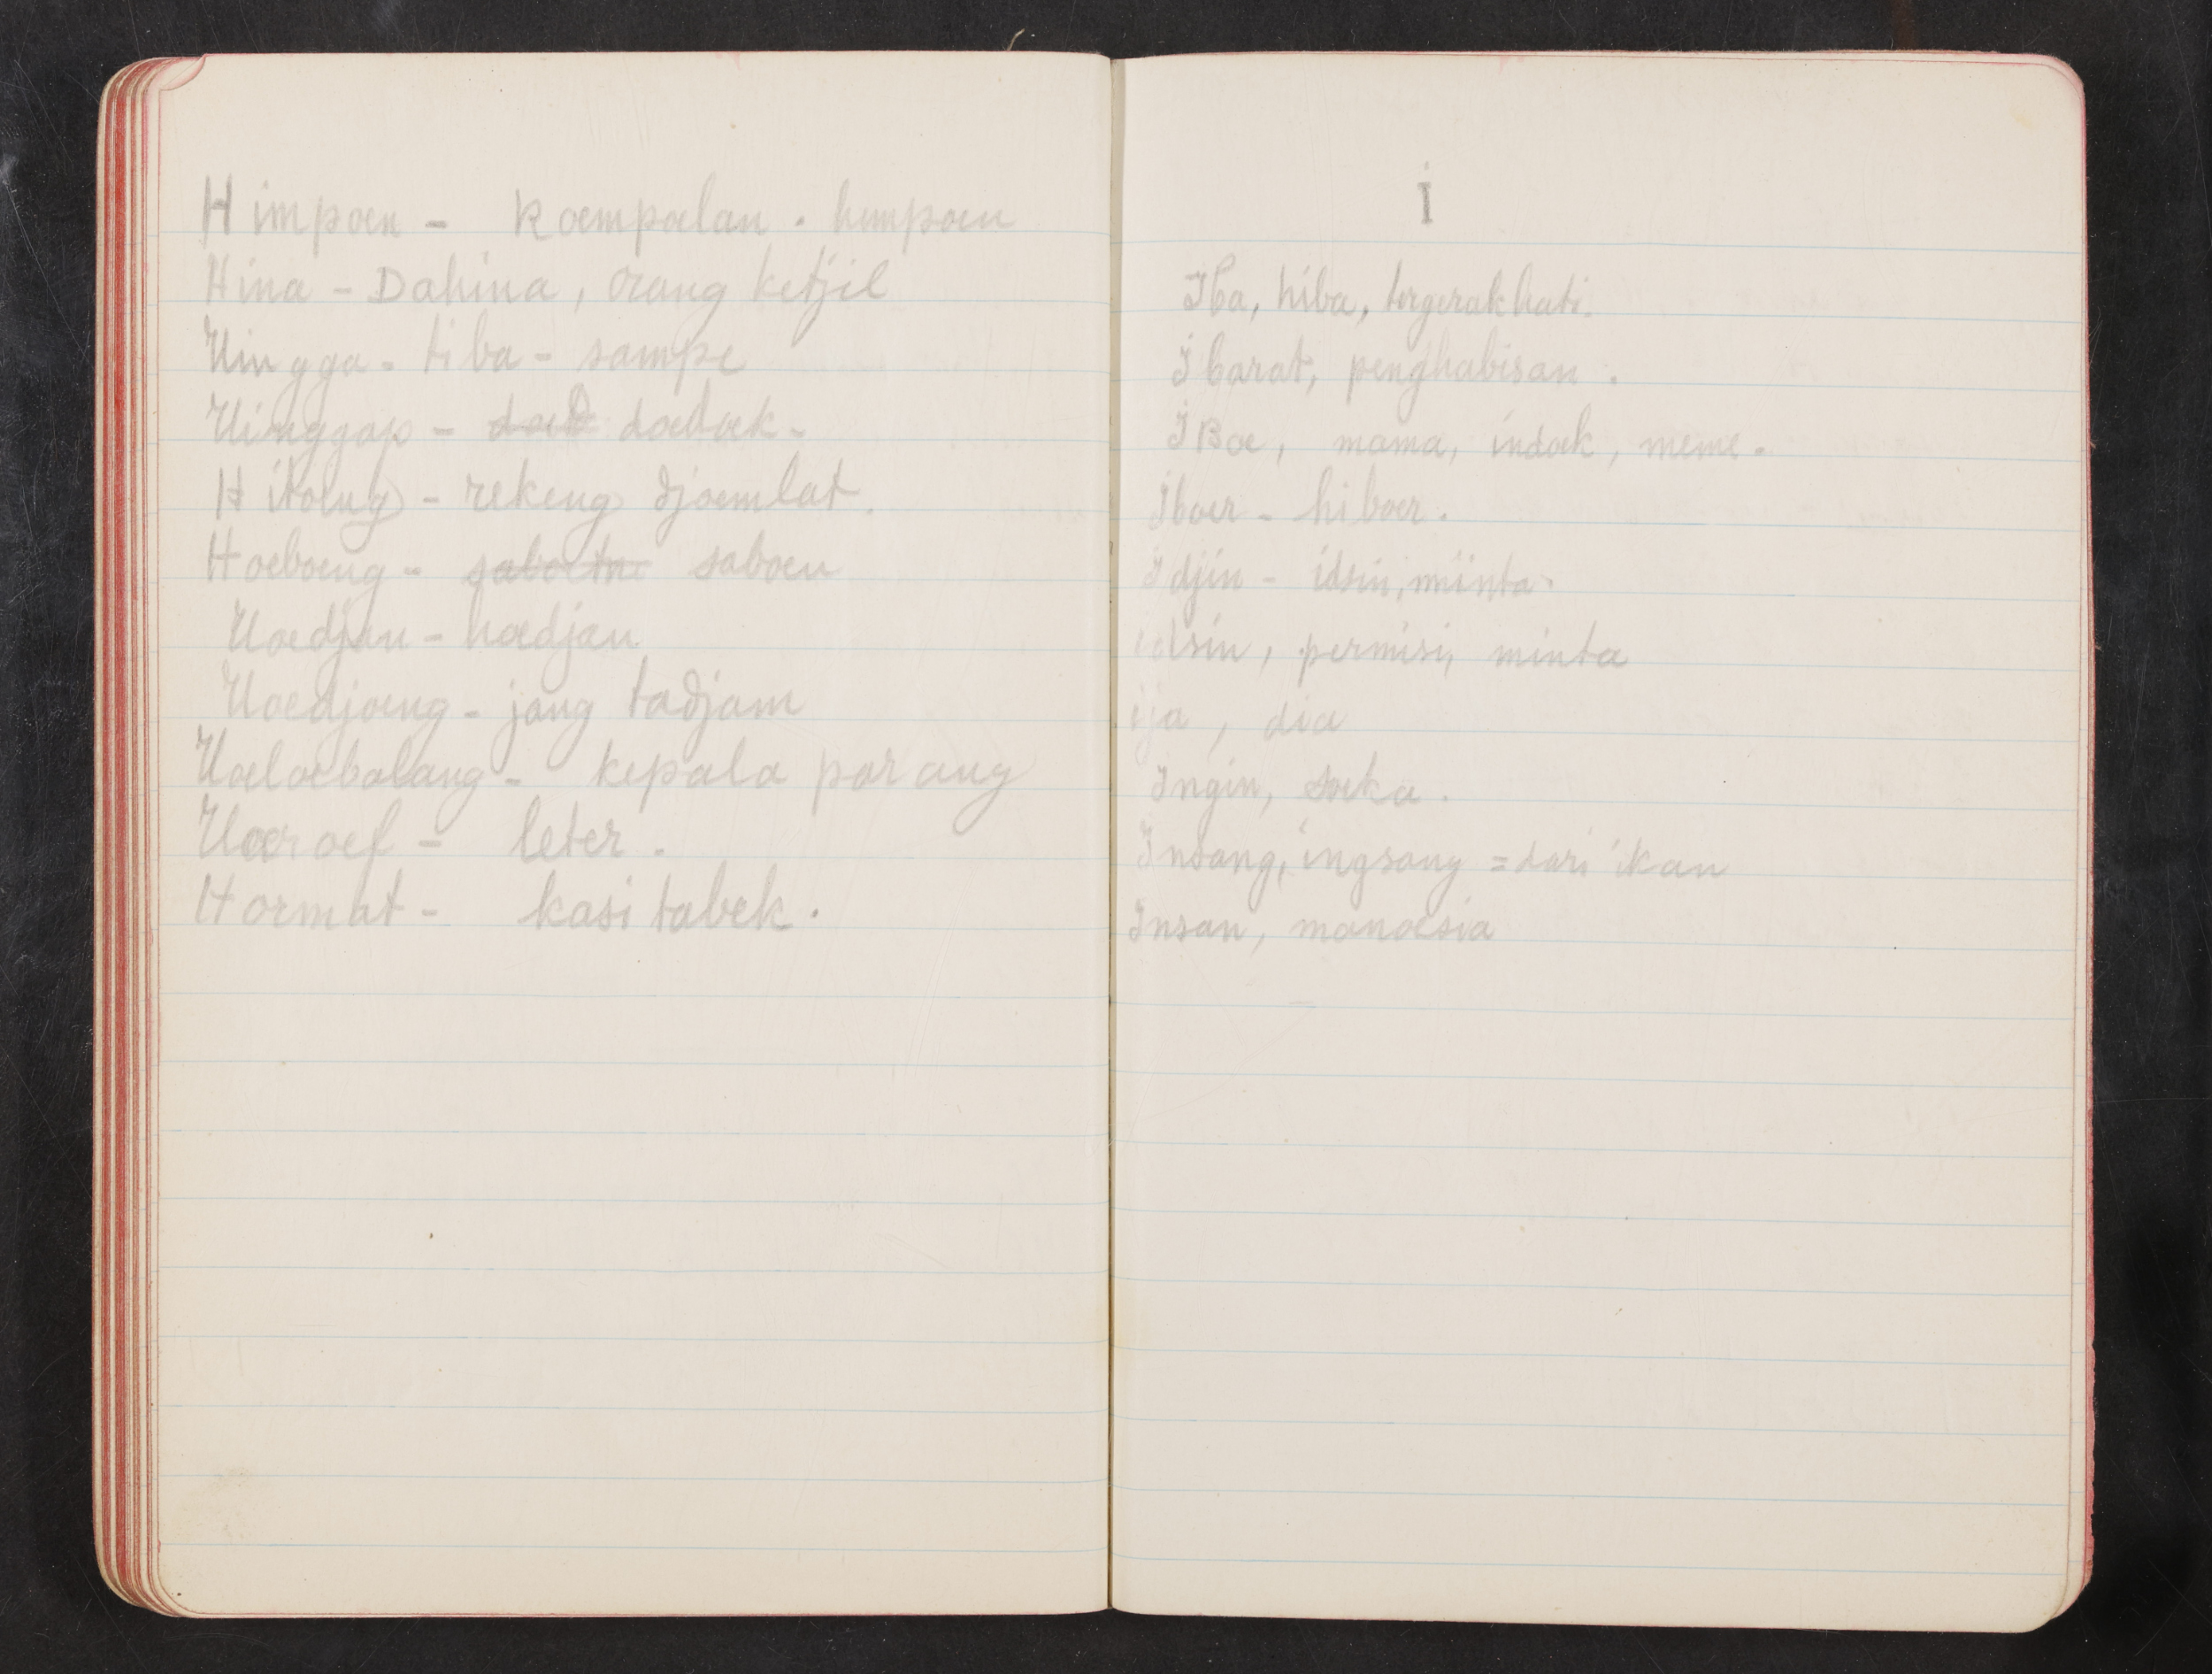 Himpoen - Koempoelan. humpoen
Hina - Dahina, orang ketjil
Hingga - tiba - sampe
Hinggap - doed doedoek -
Hitoeng - rekeng djoemlat.
Hoeboeng - saboetn saboen
Hoedjan - hoedjan
Hoedjoeng - jang tadjam
Hoeloebalang - kepala parang
Hoeroef - leter.
Hormat - kasi tabek.
I
Iba, hiba, tergerak hati.
Ibarat, penghabisan.
IBoe, mama, indoek, meme.
Iboer - hiboer.
Idjin - idsin, minta.
idsin, permisi, minta
ija, dia
Ingin, soeka.
Insang, ingsang = dari ikan
Insan, manoesia